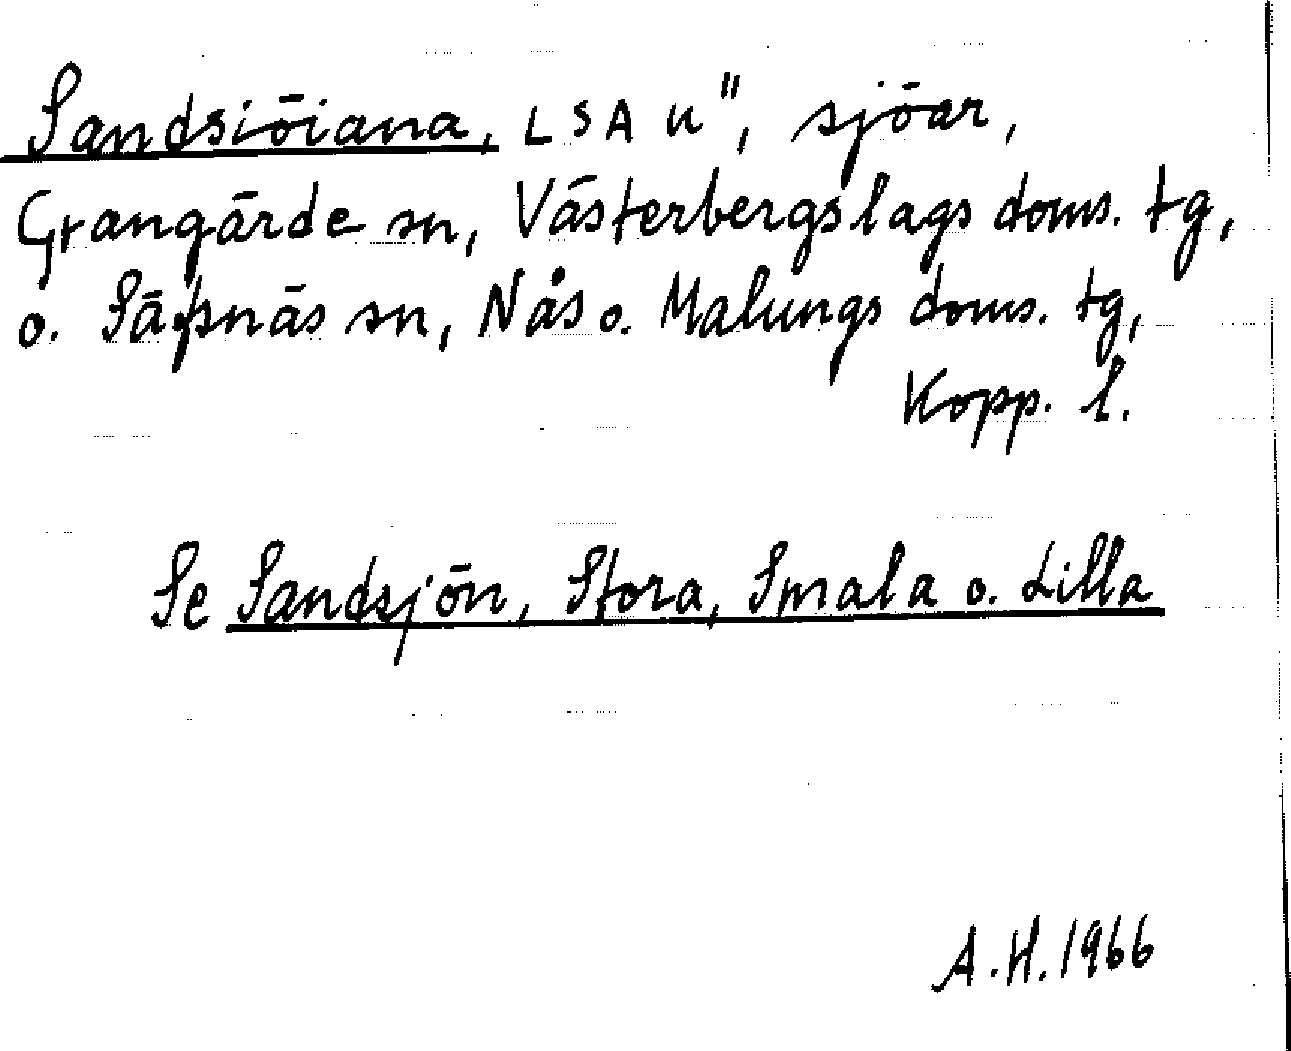 Sandsiöiana, LSA U", sjöar,
Grangärde sn, Västerbergslags doms. tg,
o. Säfsnäs sn, Nås o. Malungs doms. tg,
Kopp. l.
Se Sandsjön, Stora, Smala o. Lilla
A.H. 1966